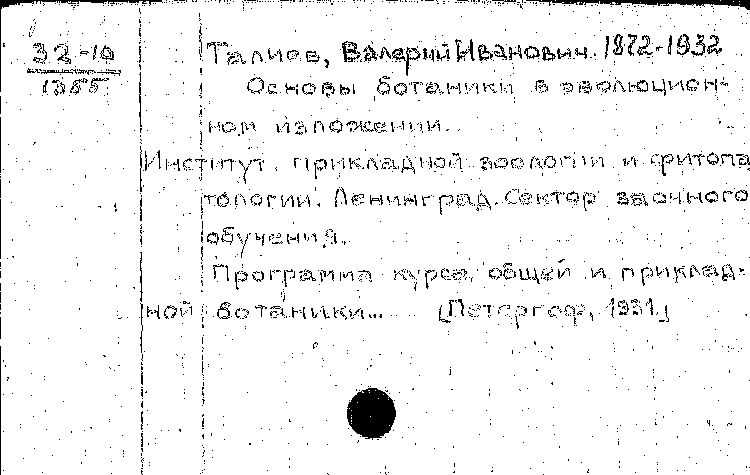 32-10
1355
Талиев, Валерий Иванович. 1872-1932
Основы ботаники в эволюцион-
ном изложении.
Институт прикладной зоологии и фитопа
тологии. Ленинград. Сектор заочного
обучения.
Программа курса общей и приклад-
ной ботаники... [Петергоф, 1931.]